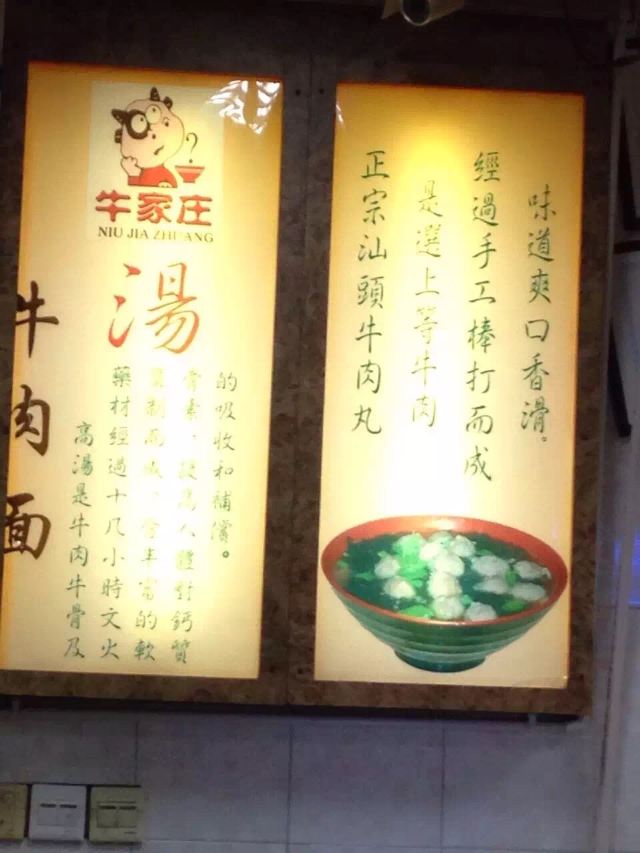 牛肉面
牛家庄
NIU JIA ZHUANG
湯
高湯是牛肉牛骨及
藥材經過十几小時文火
制而成，含丰富的軟
骨素、提高人體對鈣質
的吸收和補償。
正宗汕頭牛肉丸
是選上等牛肉
經過手工棒打而成
味道爽口香滑。